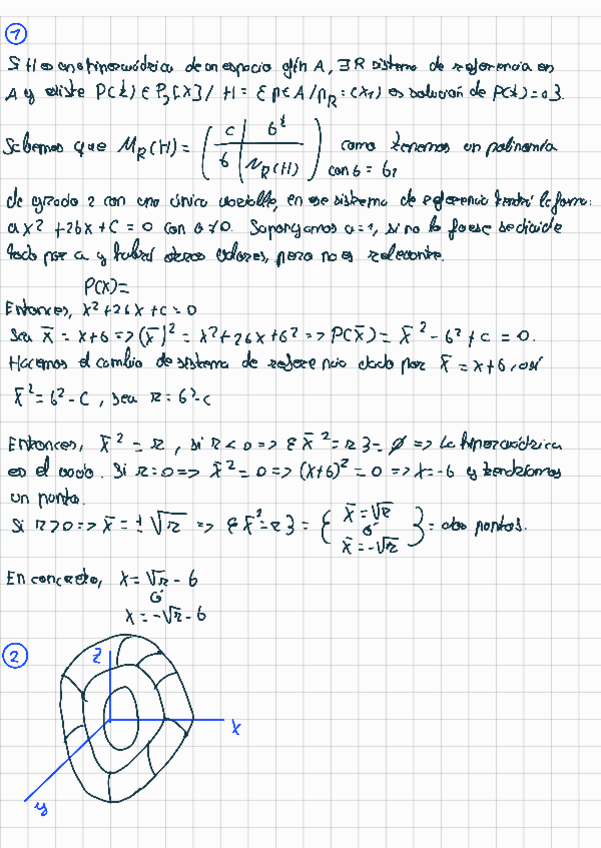 1
Si H es una hipercuádrica de un espacio afín A, ∃ R sistema de referencia en
A y existe P(x) ∈ P₂[x] / H = {p ∈ A / p_R = (x₁) es solución de P(x) = 0}.
Sabemos que M_R(H) = ( c | b^t / b | N_R(H) ) como tenemos un polinomio
con b = b₁
de grado 2 con una única variable, en ese sistema de referencia tendrá la forma:
ax² + 2bx + c = 0 con a ≠ 0. Supongamos a = 1, si no lo fuese se divide
todo por a y habrá otros valores, pero no es relevante.
P(x) =
Entonces, x² + 2bx + c = 0
Sea x̄ = x + b => (x̄)² = x² + 2bx + b² => P(x̄) = x̄² - b² + c = 0.
Hacemos el cambio de sistema de referencia dado por x̄ = x + b, así
x̄² = b² - c, sea r = b² - c
Entonces, x̄² = r, si r < 0 => {x̄² = r} = ∅ => la hipercuádrica
es el vacío. Si r = 0 => x̄² = 0 => (x + b)² = 0 => x = -b y tendríamos
un punto.
Si r > 0 => x̄ = ±√r => {x̄² = r} = { x̄ = √r ó x̄ = -√r } = dos puntos.
En concreto, x = √r - b
ó
x = -√r - b
2
z
x
y